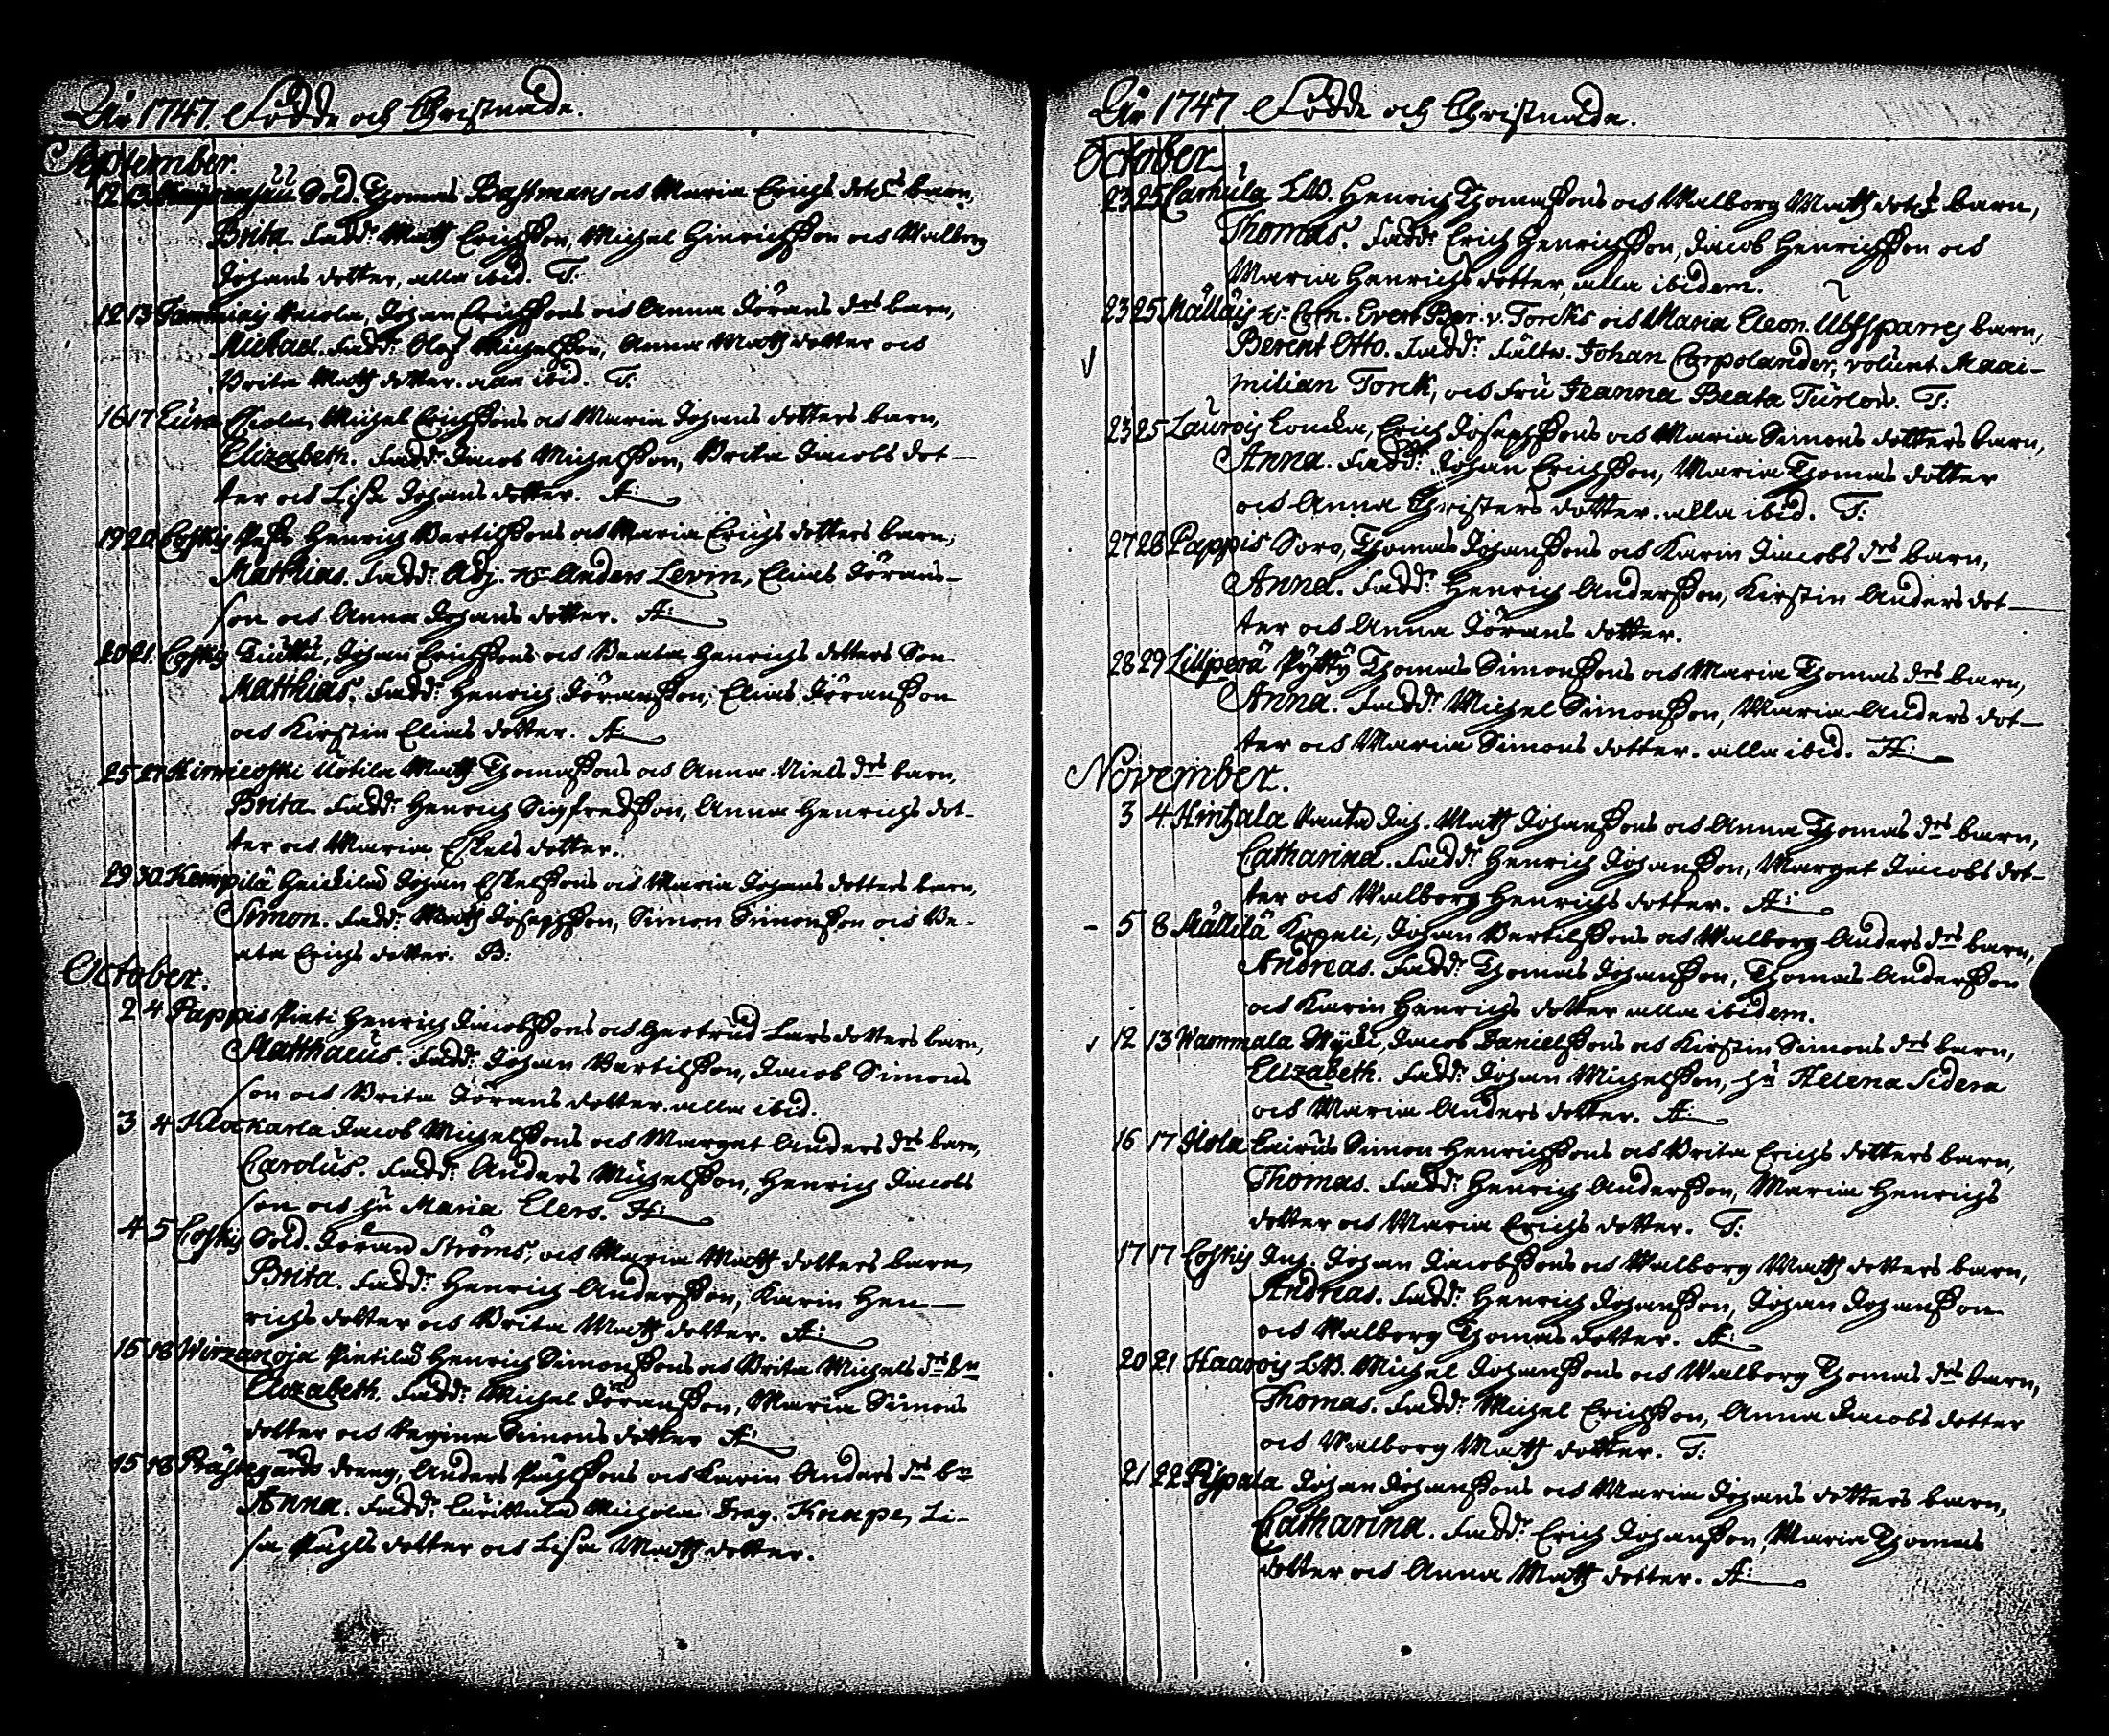 Åhr 1747. Födde och Christnade.
September.
12 13 Sold. Thomas Bastmans och Maria Erichs dotrs barn,
Brita. Fadd: Matth Erichsson, Michel Hinrichsson och Walborg
Johans dotter, alla ibid. T:
12 13 Johan Erichssons och Anna Jörans drs barn,
Michael. Fadd: Olof Michelsson, Anna Matth dotter och
Brita Matth dotter. alla ibid. T:
16 17 Eura Michel Erichssons och Maria Johans dotters barn,
Elizabeth. Fadd: Jacob Michelsson, Brita Jacobs dot-
ter och Lisa Johans dotter. A:
19 20 Coskis Henrich Bertilssons och Maria Erichs dotters barn,
Matthias. Fadd: Adj. Hr Anders Levin, Elias Jörans-
son och Anna Johans dotter. A:
20 21 Coskis Johan Erichssons och Beata Henrichs dotters Son
Matthias. Fadd: Henrich Jöransson, Elias Jöransson
och Kirstin Elias dotter. A:
25 27 Hirwicoski Uotila Matth Thomassons och Anna Niels drs barn,
Brita. Fadd: Henrich Sigfredsson, Anna Henrichs dot-
ter och Maria Eskels dotter.
29 30 Kempilä Heickilä Johan Eskelssons och Maria Johans dotters barn,
Simon. Fadd: Matth Josephsson, Simon Simonsson och Be-
ata Erichs dotter. B:
October.
2 4 Pappis Pieti Henrich Jacobssons och Hertrud Lars dotters barn,
Matthaeus. Fadd: Johan Bertilsson, Jacob Simons
son och Brita Jörans dotter. alla ibid.
3 4 Klockarla Jacob Michelssons och Marget Anders drs barn,
Carolus. Fadd: Anders Michelsson, Henrich Jacobs
son och hu Maria Elers. A:
4 5 Coskis Sold. Jöran Ströms, och Maria Matth dotters barn,
Brita. Fadd: Henrich Andersson, Karin Hen-
richs dotter och Brita Matth dotter. A:
15 18 Wirzanoja Pietilä Henrich Simonssons och Brita Michels drs bn
Elizabeth. Fadd: Michel Jöransson, Maria Simons
dotter och Regina Simons dotter A:
15 18 Prästegårds dreng, Anders Påhlssons och Karin Anders drs bn
Anna. Fadd: Drag. Knape, Li-
sa Påhls dotter och Lisa Matth dotter.
Åhr 1747 Födde och Christnade.
October
23 25 Carhula LW. Henrich Thomassons och Walborg Matth dotrs barn,
Thomas. Fadd: Erich Henrichsson, Jacob Henrichsson och
Maria Henrichs dotter, alla ibidem.
23 25 Mälläis Hr Corn. Evert Ber. v. Torcks och Maria Eleon. Ulfsparres barn,
Berent Otto. Fadd: Fältw. Johan Carpolander, volunt. Maxi-
milian Torck, och Fru Jeanna Beata Türlow. T:
23 25 Laurois Loucka, Erich Josephssons och Maria Simons dotters barn,
Anna. Fadd: Johan Erichsson, Maria Thomas dotter
och Anna Christers dotter. alla ibid. T:
27 28 Pappis Soro, Thomas Johanssons och Karin Jacobs drs barn,
Anna. Fadd: Henrich Andersson, Kirstin Anders dot-
ter och Anna Jörans dotter.
28 29 Lillperä Pytty Thomas Simonssons och Maria Thomas drs barn,
Anna. Fadd: Michel Simonsson, Maria Anders dot-
ter och Maria Simons dotter. alla ibid. A:
November.
3 4 Hinzala Matth Johanssons och Anna Thomas drs barn,
Catharina. Fadd: Henrich Johansson, Marget Jacobs dot-
ter och Walborg Henrichs dotter. A:
5 8 Mällilä Kopeli, Johan Bertilssons och Walborg Anders drs barn,
Andreas. Fadd: Thomas Johansson, Thomas Andersson
och Karin Henrichs dotter alla ibidem.
12 13 Wammala Wycki, Jacob Danielssons och Kirstin Simons drs barn,
Elizabeth. Fadd: Johan Michelsson, hu Helena Sidera
och Maria Anders dotter. A:
16 17 Isola Simon Henrichssons och Brita Erichs dotters barn,
Thomas. Fadd: Henrich Andersson, Maria Henrichs
dotter och Maria Erichs dotter. T:
17 17 Coskis Inh. Johan Jacobssons och Walborg Matth dotters barn,
Andreas. Fadd: Henrich Johansson, Johan Johansson
och Walborg Thomas dotter. A:
20 21 Haarois LW. Michel Johanssons och Walborg Thomas drs barn,
Thomas. Fadd: Michel Erichsson, Anna Jacobs dotter
och Walborg Matth dotter. T:
21 22 Pijpala Johan Johanssons och Maria Johans dotters barn,
Catharina. Fadd: Erich Johansson, Maria Thomas
dotter och Anna Matth dotter. A: